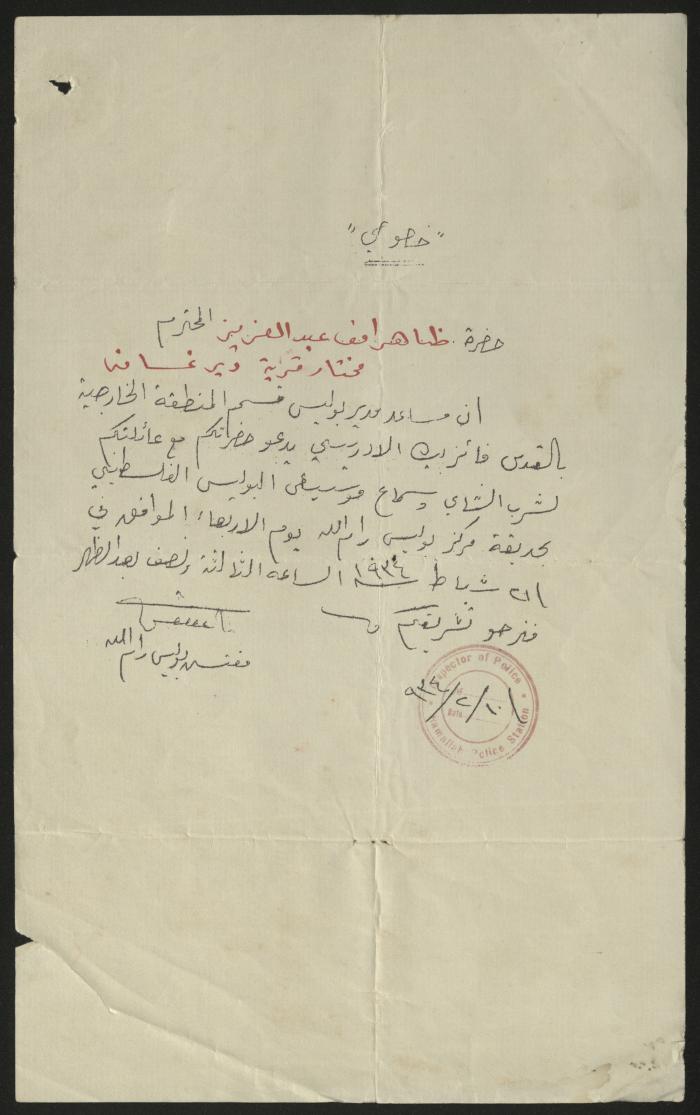 "خصوصي"
حضرة ظاهر افندي عبد العزيز المحترم
مختار قرية دير غسانه
ان مساعد مدير بوليس قسم المنطقة الخارجية
بالقدس فائز بك الادريسي يدعو حضراتكم مع عائلتكم
لشرب الشاي وسماع موسيقى البوليس الفلسطيني
بحديقة مركز بوليس رام الله يوم الاربعاء الموافق في
شباط ١٩٣٤ الساعه الثالثة ونصف بعد الظهر
فنرجو تشريفكم
مفتش بوليس رام الله
Inspector of Police
Date
Ramallah Police Station